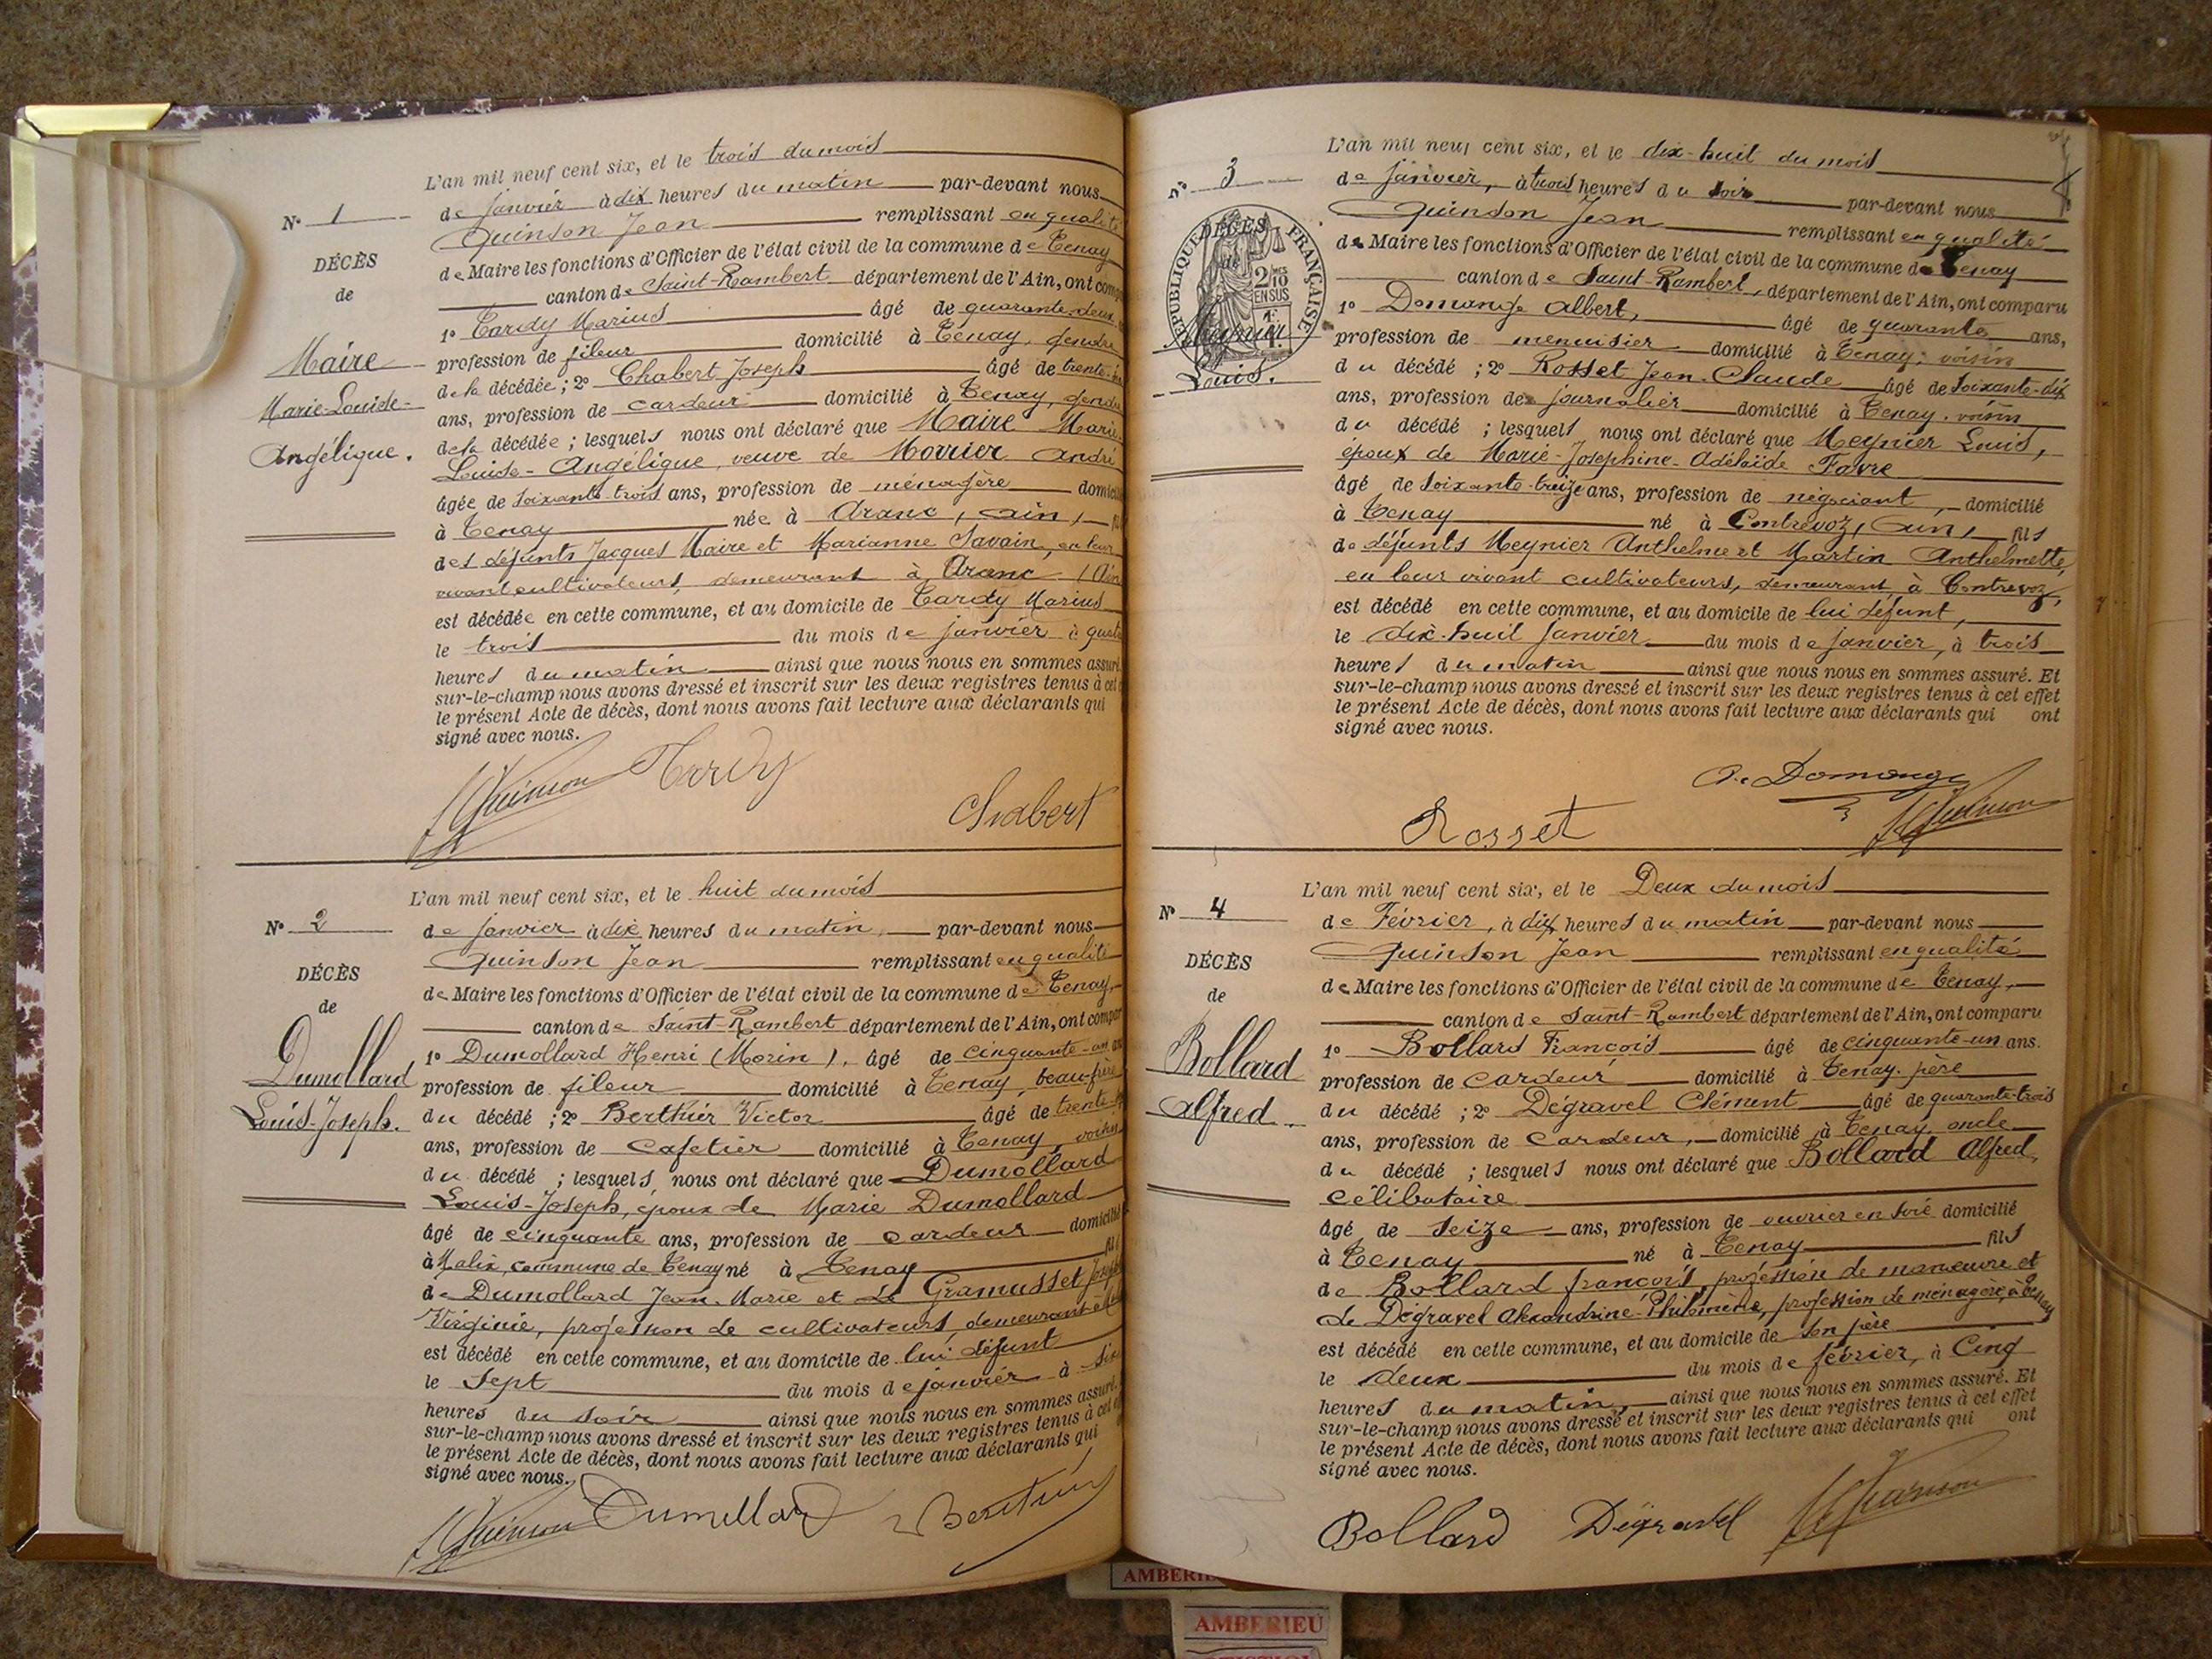 L'an mil neuf cent six, et le trois du mois
N° 1
de janvier à dix heures du matin par-devant nous
Quinson Jean remplissant en qualité
DÉCÈS
de Maire les fonctions d'Officier de l'état civil de la commune de Tenay
de
canton de Saint-Rambert département de l'Ain, ont comp
1° Tardy Marius âgé de quarante-deux
Maire
profession de fileur domicilié à Tenay, gendre
de la décédée ; 2° Chabert Joseph âgé de trente
Marie-Louise-
ans, profession de cardeur domicilié à Tenay, gendre
Angélique.
de la décédée ; lesquels nous ont déclaré que Maire Marie-
Louise-Angélique, veuve de Morrier André
âgée de soixante-trois ans, profession de ménagère domicil
à Tenay née à Aranc, (Ain)
des défunts Jacques Maire et Marianne Savain, en leur
vivant cultivateurs, demeurant à Aranc (Ain
est décédée en cette commune, et au domicile de Tardy Marius
le trois du mois de janvier à quat
heures du matin ainsi que nous nous en sommes assuré
sur-le-champ nous avons dressé et inscrit sur les deux registres tenus à cet
le présent Acte de décès, dont nous avons fait lecture aux déclarants qui
signé avec nous.
Quinson Tardy
Chabert
L'an mil neuf cent six, et le huit du mois
N° 2
de janvier à dix heures du matin, par-devant nous
Quinson Jean remplissant en qualité
DÉCÈS
de Maire les fonctions d'Officier de l'état civil de la commune de Tenay,
de
canton de Saint-Rambert département de l'Ain, ont compar
1° Dumollard Henri (Morin), âgé de cinquante-un
Dumollard
profession de fileur domicilié à Tenay, beau-frère
Louis-Joseph.
du décédé ; 2° Berthier Victor âgé de trente
ans, profession de cafetier domicilié à Tenay, voisin
du décédé ; lesquels nous ont déclaré que Dumollard
Louis-Joseph, époux de Marie Dumollard
âgé de cinquante ans, profession de cardeur domicilié
à Malix, commune de Tenay né à Tenay fils
de Dumollard Jean-Marie et de Gramusset
Virginie, profession de cultivateurs, demeurant à
est décédé en cette commune, et au domicile de lui défunt
le sept du mois de janvier à six
heures du soir ainsi que nous nous en sommes assuré.
sur-le-champ nous avons dressé et inscrit sur les deux registres tenus à cet
le présent Acte de décès, dont nous avons fait lecture aux déclarants qui
signé avec nous.
Quinson Dumollard Berthier
L'an mil neuf cent six, et le dix-huit du mois
N° 3
de janvier, à trois heures du soir par-devant nous
Quinson Jean remplissant en qualité
DÉCÈS
de
RÉPUBLIQUE FRANÇAISE
2/10 MES
EN SUS
de Maire les fonctions d'Officier de l'état civil de la commune de Tenay
canton de Saint-Rambert, département de l'Ain, ont comparu
1° Domange Albert, âgé de quarante ans,
Meynier
profession de menuisier domicilié à Tenay, voisin
Louis.
du décédé ; 2° Rosset Jean-Claude âgé de soixante-dix
ans, profession de journalier domicilié à Tenay, voisin
du décédé ; lesquels nous ont déclaré que Meynier Louis,
époux de Marie-Josephine-Adélaïde Favre
âgé de soixante-treize ans, profession de négociant, domicilié
à Tenay né à Contrevoz, (Ain), fils
de défunts Meynier Anthelme et Martin Anthelmette,
en leur vivant cultivateurs, demeurant à Contrevoz,
est décédé en cette commune, et au domicile de lui défunt,
le dix-huit janvier du mois de janvier, à trois
heures du matin ainsi que nous nous en sommes assuré. Et
sur-le-champ nous avons dressé et inscrit sur les deux registres tenus à cet effet
le présent Acte de décès, dont nous avons fait lecture aux déclarants qui ont
signé avec nous.
A. Domange
Rosset Quinson
L'an mil neuf cent six, et le Deux du mois
N° 4
de Février, à dix heures du matin par-devant nous
Quinson Jean remplissant en qualité
DÉCÈS
de Maire les fonctions d'Officier de l'état civil de la commune de Tenay,
de
canton de Saint-Rambert département de l'Ain, ont comparu
Bollard
1° Bollard François âgé de cinquante-un ans.
profession de cardeur domicilié à Tenay, père
Alfred
du décédé ; 2° Dégravel Clément âgé de quarante-trois
ans, profession de cardeur, domicilié à Tenay, oncle
du décédé ; lesquels nous ont déclaré que Bollard Alfred,
célibataire
âgé de seize ans, profession de ouvrier en soie domicilié
à Tenay né à Tenay fils
de Bollard françois, profession de manœuvre et
de Dégravel Alexandrine-Philomène, profession de ménagère, à Tenay
est décédé en cette commune, et au domicile de son père
le deux du mois de février, à cinq
heures du matin, ainsi que nous nous en sommes assuré. Et
sur-le-champ nous avons dressé et inscrit sur les deux registres tenus à cet effet
le présent Acte de décès, dont nous avons fait lecture aux déclarants qui ont
signé avec nous.
Bollard Dégravel Quinson
AMBERIEU
AMBERIEU